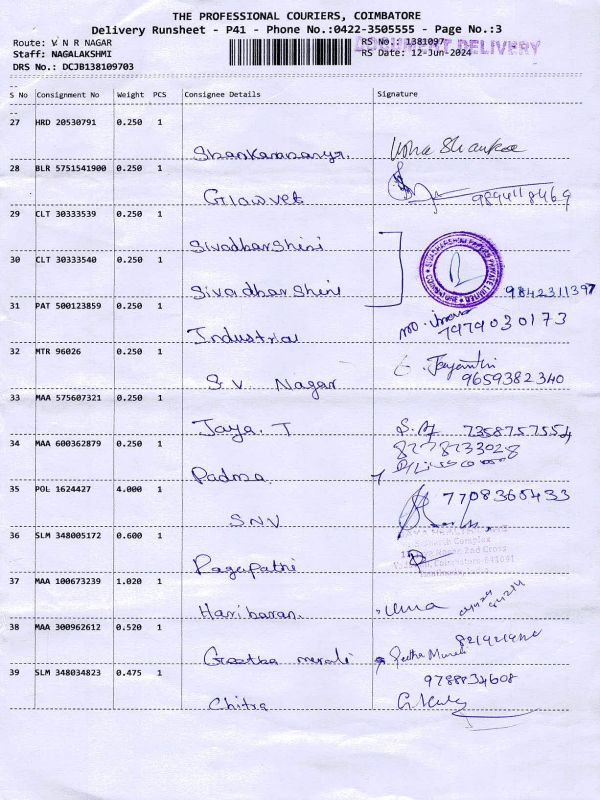 THE PROFESSIONAL COURIERS, COIMBATORE
Delivery Runsheet - P41 - Phone No.:0422-3505555 - Page No.:3
Route: V N R NAGAR RS No.: 1381097 DELIVERY
Staff: NAGALAKSHMI RS Date: 12-Jun-2024
DRS No.: DCJB138109703
S No Consignment No Weight PCS Consignee Details Signature
27 HRD 20530791 0.250 1
Shankaranarya. Usha Shankar
28 BLR 5751541900 0.250 1
Glowvet 9894118469
29 CLT 30333539 0.250 1
Sivadharshini
30 CLT 30333540 0.250 1
SIVADHARSHINI PAPERS PRIVATE LIMITED COIMBATORE
Sivadharshini 9842311397
31 PAT 500123859 0.250 1
Industrial 7979030173
32 MTR 96026 0.250 1
G. Jayanthi
S.V. Nagar 9659382340
33 MAA 575607321 0.250 1
Jaya. T 7358757554
34 MAA 600362879 0.250 1 8278233028
Padma
35 POL 1624427 4.000 1 7708365433
SNV
36 SLM 348005172 0.600 1
Complex
Nagar, 2nd Cross
Coimbatore-641091
Pagapathi
37 MAA 100673239 1.020 1
Hariharan. Uma
38 MAA 300962612 0.520 1
Geetha Murali Geetha Murali
39 SLM 348034823 0.475 1 9788834608
Chitra